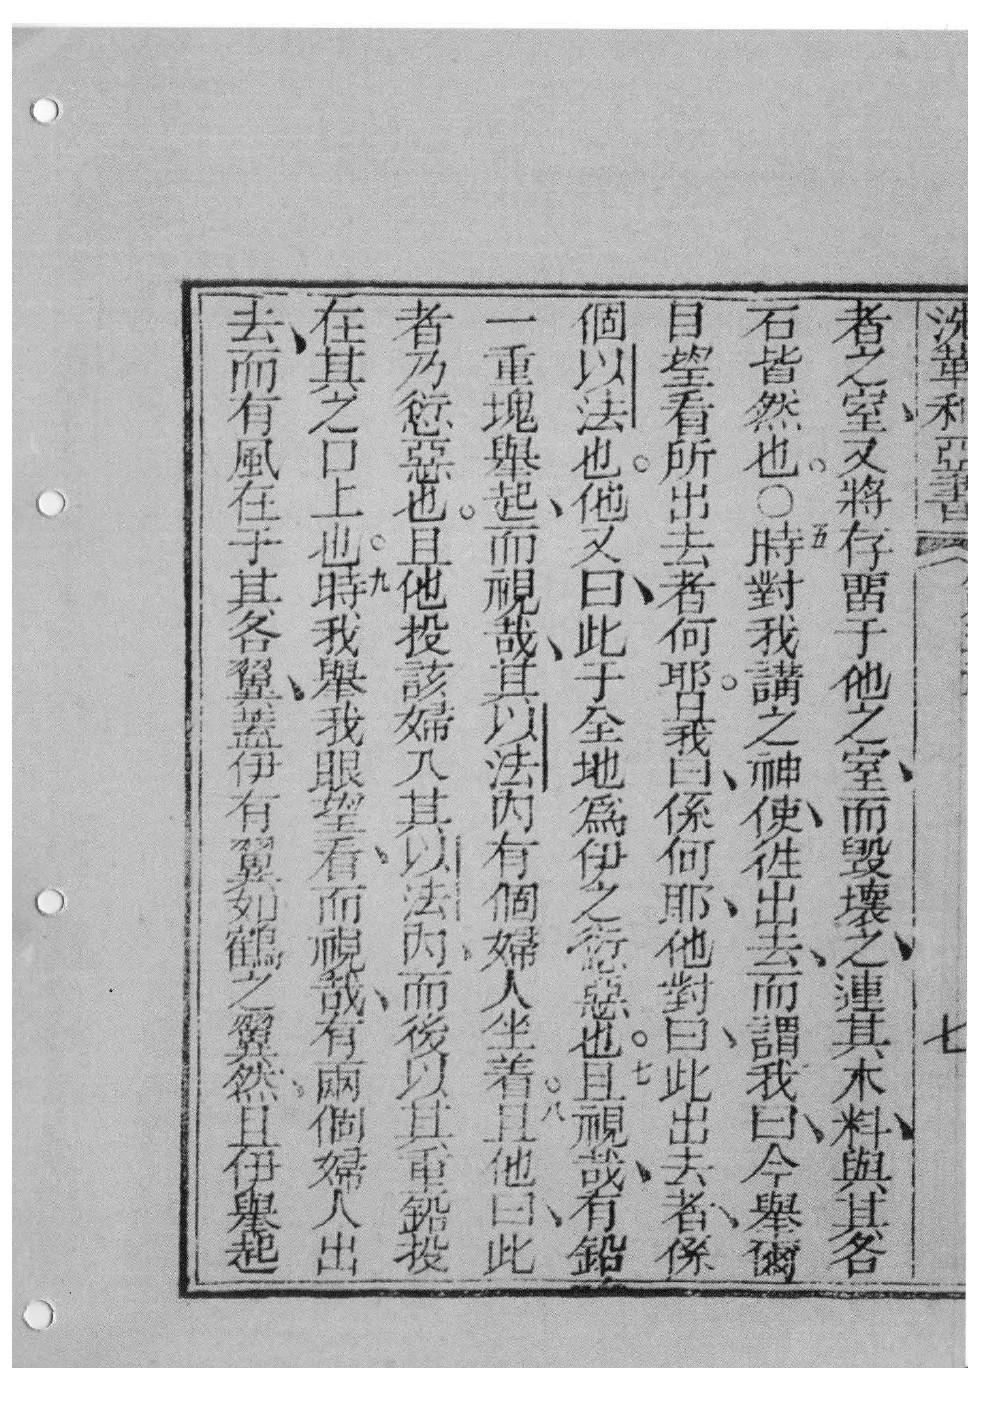 洗革利亞書
七
者之室、又將存畱于他之室、而毀壞之、連其木料、與其各
石皆然也。○五時對我講之神使、徃出去、而謂我曰、今舉爾
目望看所出去者何耶。且我曰、係何耶、他對曰、此出去者、係
個以法也。他又曰、此于全地爲伊之愆惡也。七且視哉、有鉛
一重塊舉起、而視哉、其以法內有個婦人坐着。八且他曰、此
者乃愆惡也。且他投該婦入其以法內、而後以其重鉛投
在其之口上也。九時我舉我眼望看、而視哉、有兩個婦人出
去、而有風在于其各翼、蓋伊有翼如鶴之翼然、且伊舉起